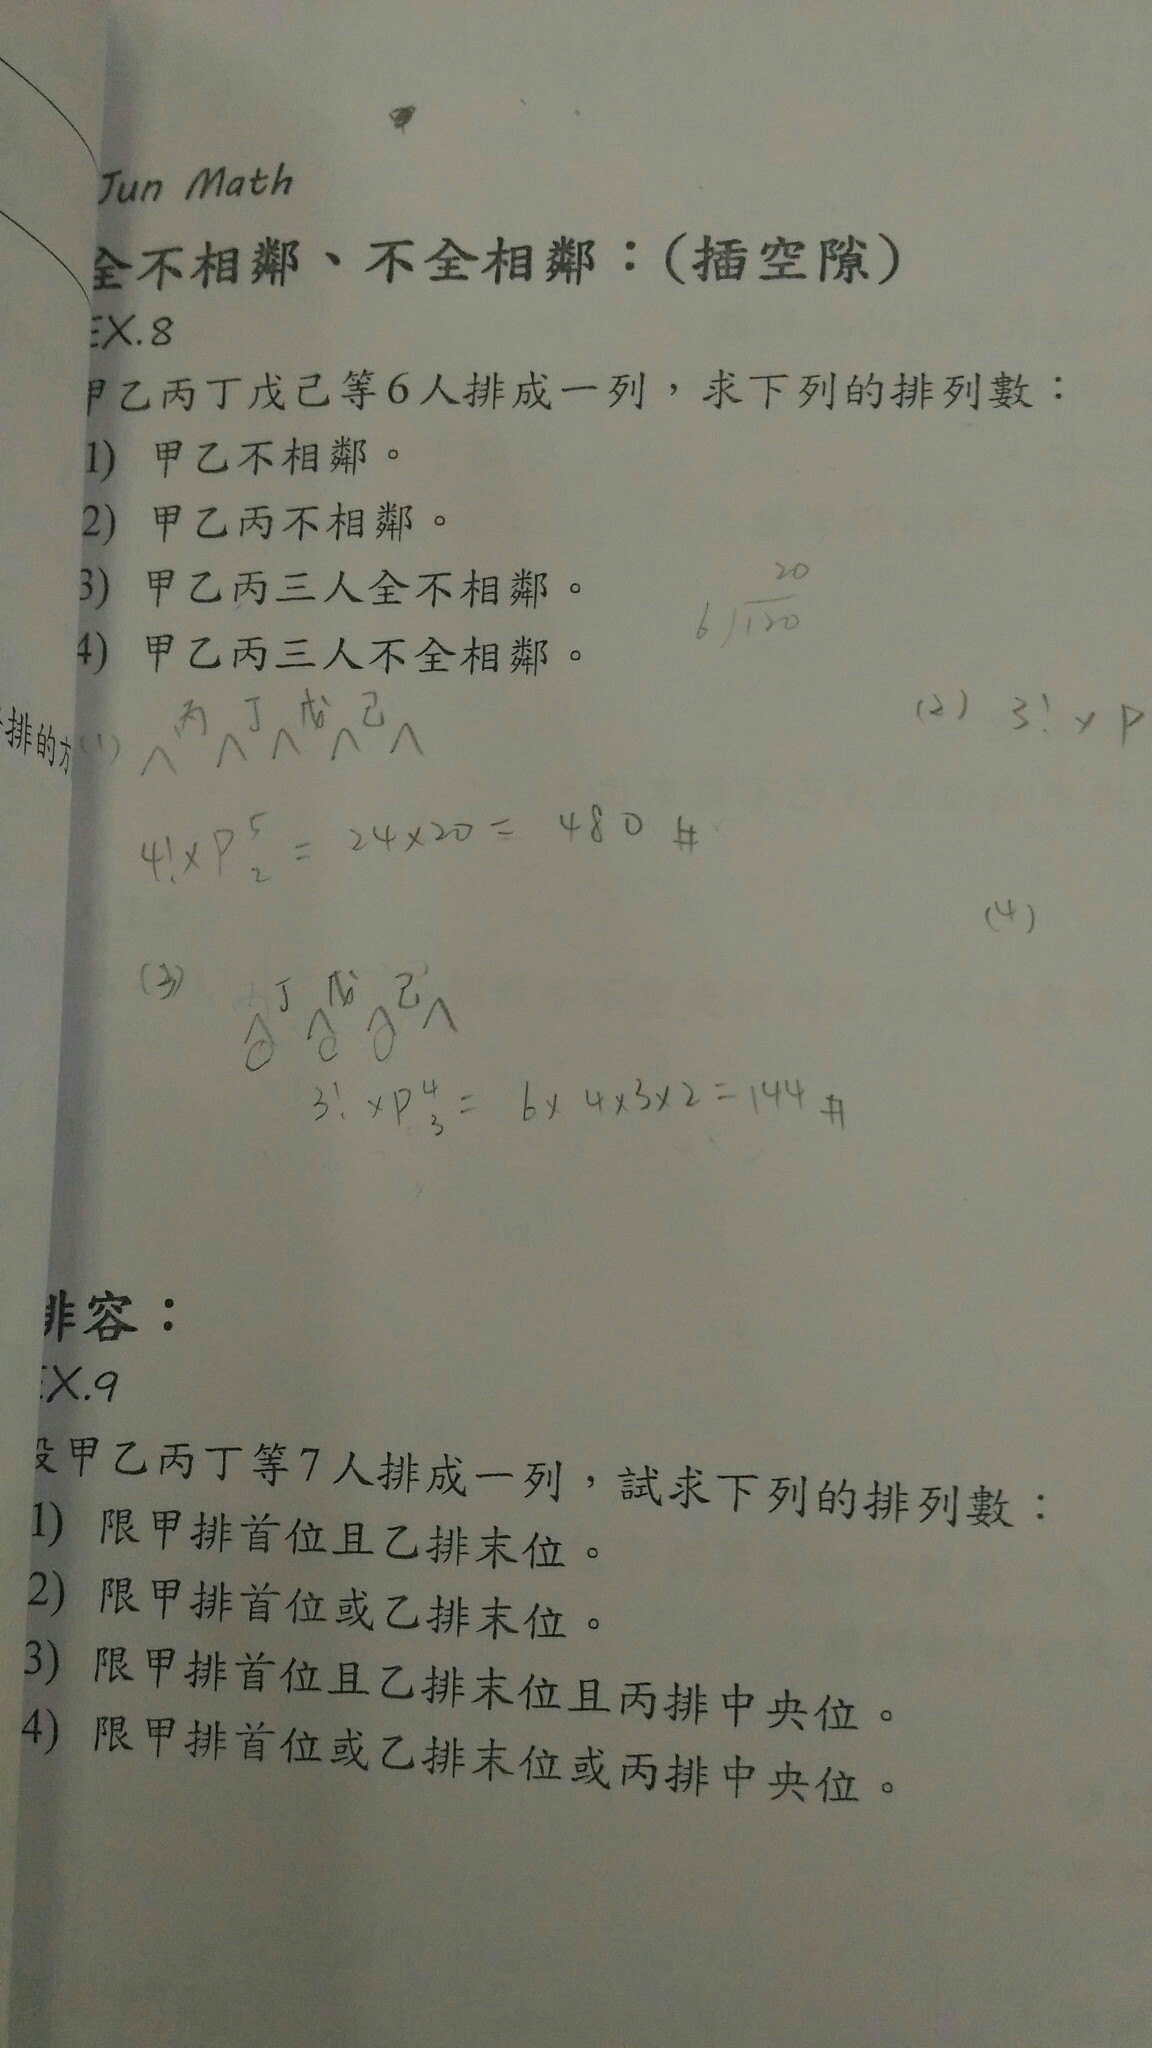 Jun Math
全不相鄰、不全相鄰：(插空隙)
EX.8
甲乙丙丁戊己等6人排成一列，求下列的排列數：
1) 甲乙不相鄰。
2) 甲乙丙不相鄰。
3) 甲乙丙三人全不相鄰。
4) 甲乙丙三人不全相鄰。
20
6)120
排的方
(1) 丙 丁 戊 己
(2) 3! × P
4! × P⁵₂ = 24×20 = 480 #
(4)
(3) 丁 戊 己
3! × P⁴₃ = 6×4×3×2 = 144 #
排容：
EX.9
設甲乙丙丁等7人排成一列，試求下列的排列數：
1) 限甲排首位且乙排末位。
2) 限甲排首位或乙排末位。
3) 限甲排首位且乙排末位且丙排中央位。
4) 限甲排首位或乙排末位或丙排中央位。